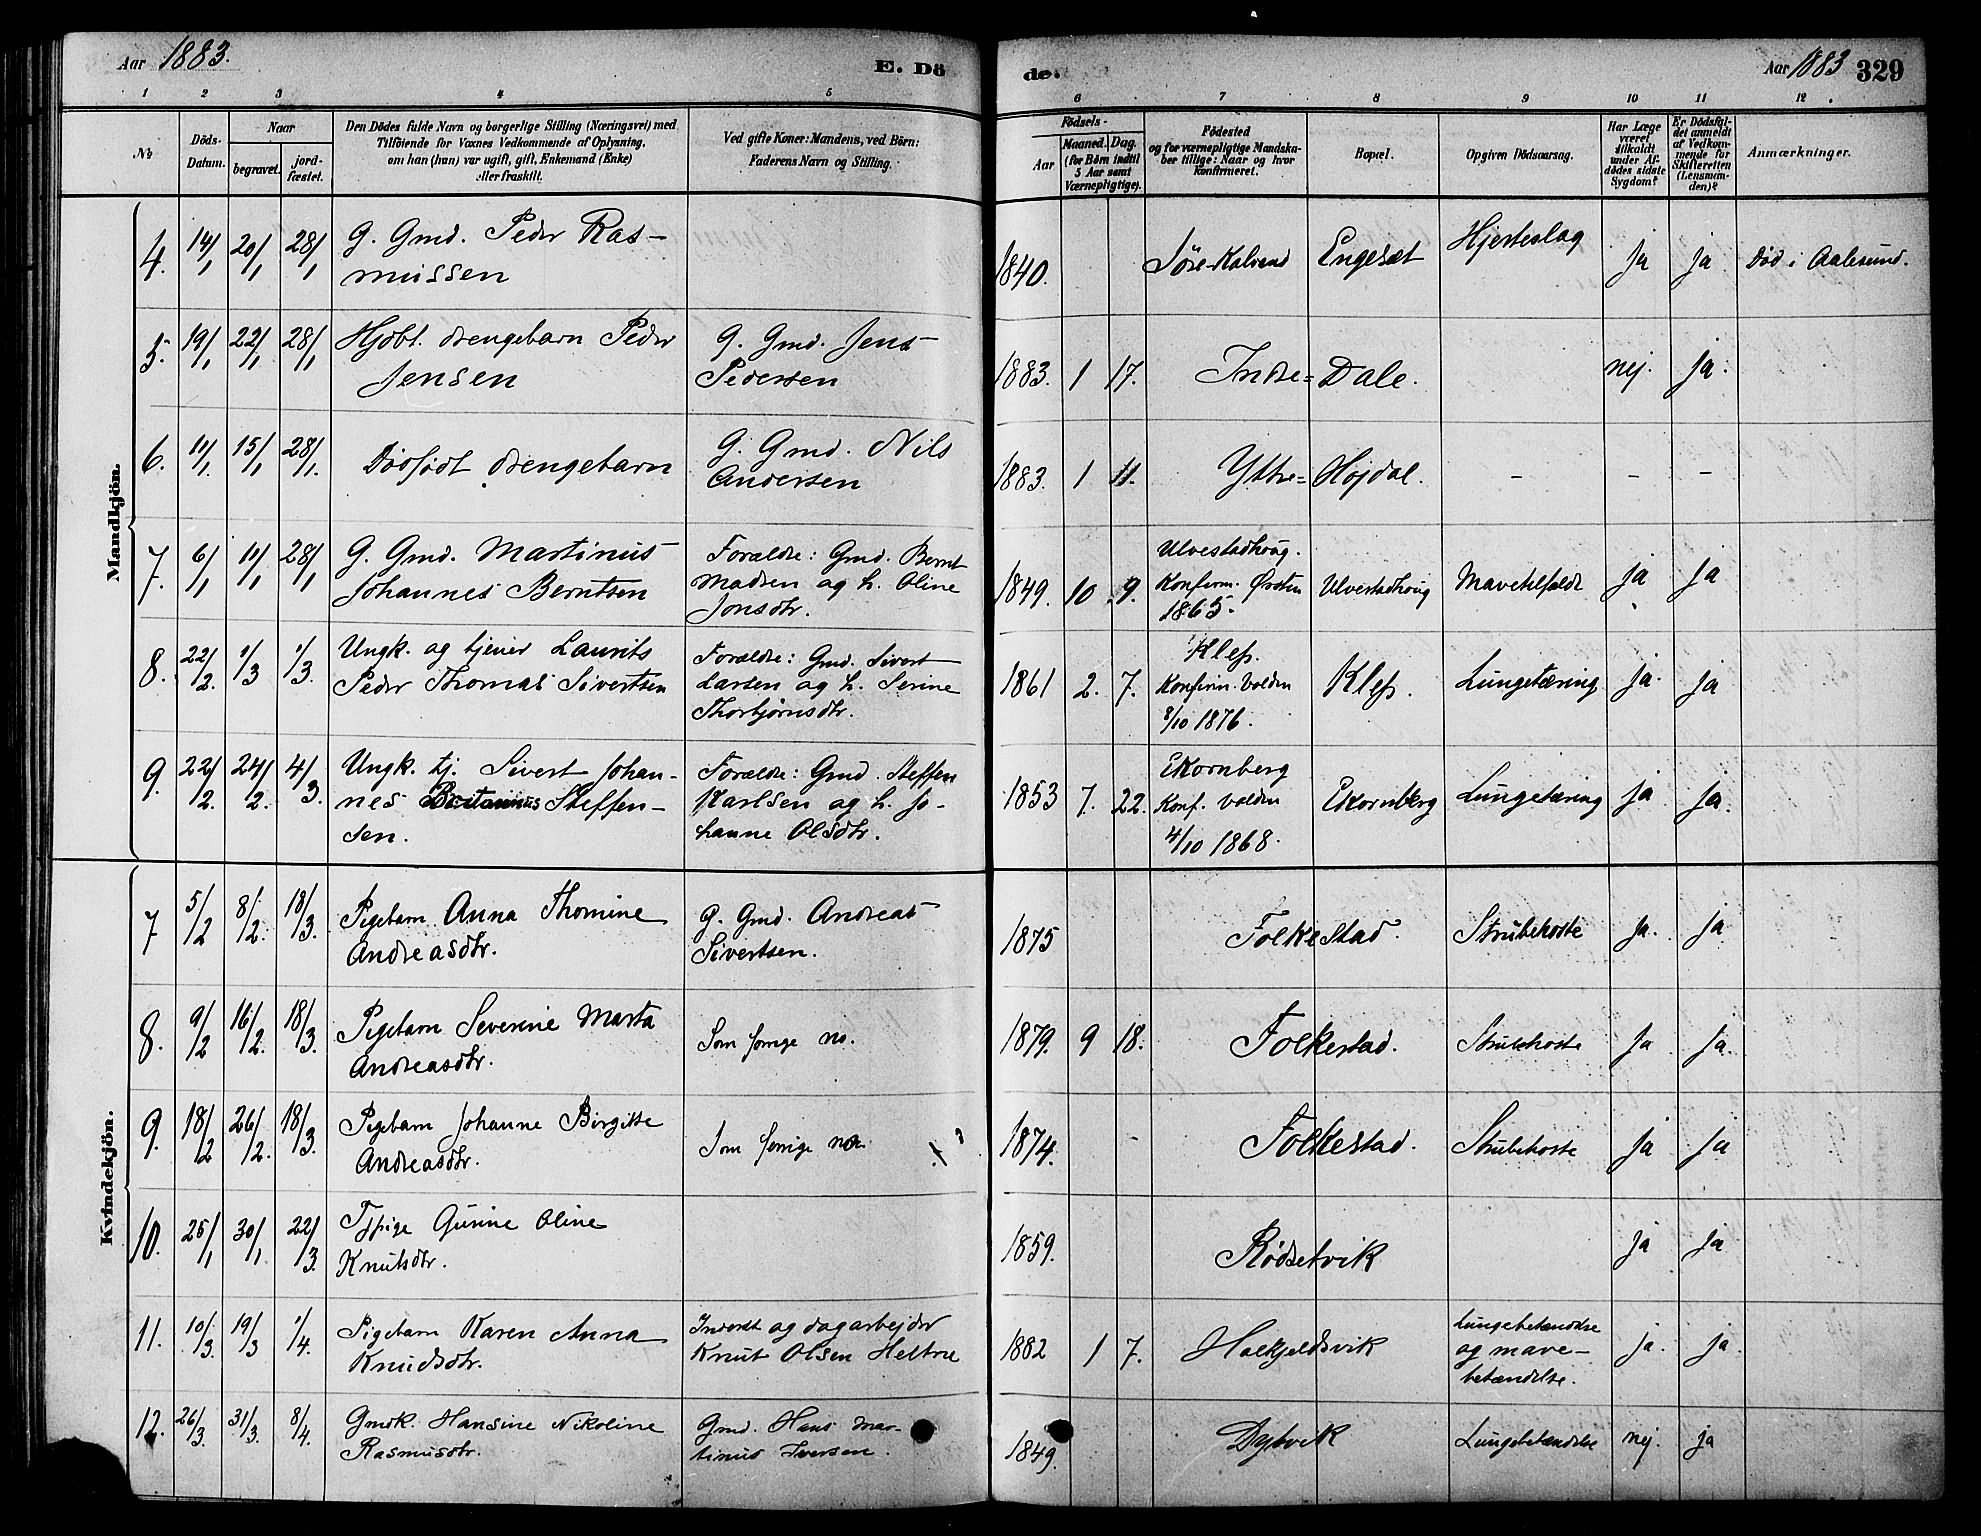 Aar 1883.
E. Dö
de.
Aar 1883
329
1 2 3 4 5 6 7 8 9 10 11 12
No
Döds-
Datum.
Naar
begravet.
jord-
fæstet.
Den Dödes fulde Navn og borgerlige Stilling (Næringsvei) med
Tilföiende for Voxnes Vedkommende af Oplysning,
om han (hun) var ugift, gift, Enkemand (Enke)
eller fraskilt.
Ved gifte Koner: Mandens, ved Börn:
Faderens Navn og Stilling.
Födsels-
Aar
Maaned. Dag.
(for Börn indtil
5 Aar samt
Værnepligtige).
Födested
og for værnepligtige Mandska-
ber tillige: Naar og hvor
konfirmeret.
Bopæl.
Opgiven Dödsaarsag.
Har Læge
været
tilkaldt
under Af-
dödes sidste
Sygdom?
Er Dödsfal-
det anmeldt
af Vedkom-
mende for
Skifteretten
(Lensman-
den)?
Anmærkninger.
Mandkjön.
4. 14/1 20/1 28/1 G. Gmd. Peder Ras-
mussen
1840. Engeset Hjerteslag ja ja Död i Aalesund.
5. 19/1 22/1 28/1 Hjdbt. drengebarn Peder
Jensen
G. Gmd. Jens
Pedersen
1883. 1 17. Indre= Dale. nej. ja.
6. 11/1. 15/1 28/1. Dödfödt drengebarn
G. Gmd. Nils
Andersen
1883. 1 11. Yttre= Højdal. - - -
7. 6/1 11/1 28/1 G. Gmd. Martinus
Johannes Berntsen
Forældre: Gmd. Bernt
Madsen og h. Oline
Jonsdtr.
1849. 10 9. Ulvestadhoug.
Konfirm. Ørsten
1865.
Ulvestadhoug Mavetilfælde ja ja
8. 22/2. 1/3 1/3. Ungk. og tjener Laurits
Peder Thomas Sivertsen
Forældre: Gmd. Sivert
Larsen og h. Serine
Thorbjørnsdtr.
1861 2. 7. Klep.
Konfirm. Volden
8/10 1876.
Klep. Lungetæring ja. ja
9. 22/2. 24/2. 4/3. Ungk. tj. Sivert Johan-
nes Steffen-
sen.
Forældre: Gmd. Steffen
Karlsen og h. Jo-
hanne Olsdtr.
1853 7. 22. Ekornberg
Konf. Volden
4/10 1868.
Ekornberg Lungetæring ja ja.
Kvindekjön.
7 5/2 8/2. 18/3. Pigebarn Anna Thomine
Andreasdtr.
G. Gmd. Andreas
Sivertsen.
1875 Folkestad. Strubehoste ja. ja
8. 9/2 16/2. 18/3. Pigebarn Severine Marta
Andreasdtr.
Som forrige no.
1879. 9 18. Folkestad. Strubehoste ja ja.
9. 18/2 26/2. 18/3. Pigebarn Johanne Birgitte
Andreasdtr.
Som forrige no.
1874. Folkestad. Strubehoste ja ja
10. 25/1 30/1 22/3. Tjpige Gurine Oline
Knutsdtr.
1859. Rödsetvik ja ja
11. 10/3. 19/3 1/4 Pigebarn Karen Anna
Knudsdtr.
Inderst og dagarbejder
Knut Olsen Heltne
1882 1 7. Holkjeldsvik Lungebetændelse
og mave-
betændelse.
ja. ja.
12. 26/3. 31/3. 8/4. Gmdk. Hansine Nikoline
Rasmusdtr.
Gmd. Hans Mar-
tinus Iversen.
1849. Dybvik Lungebetændelse nej. ja